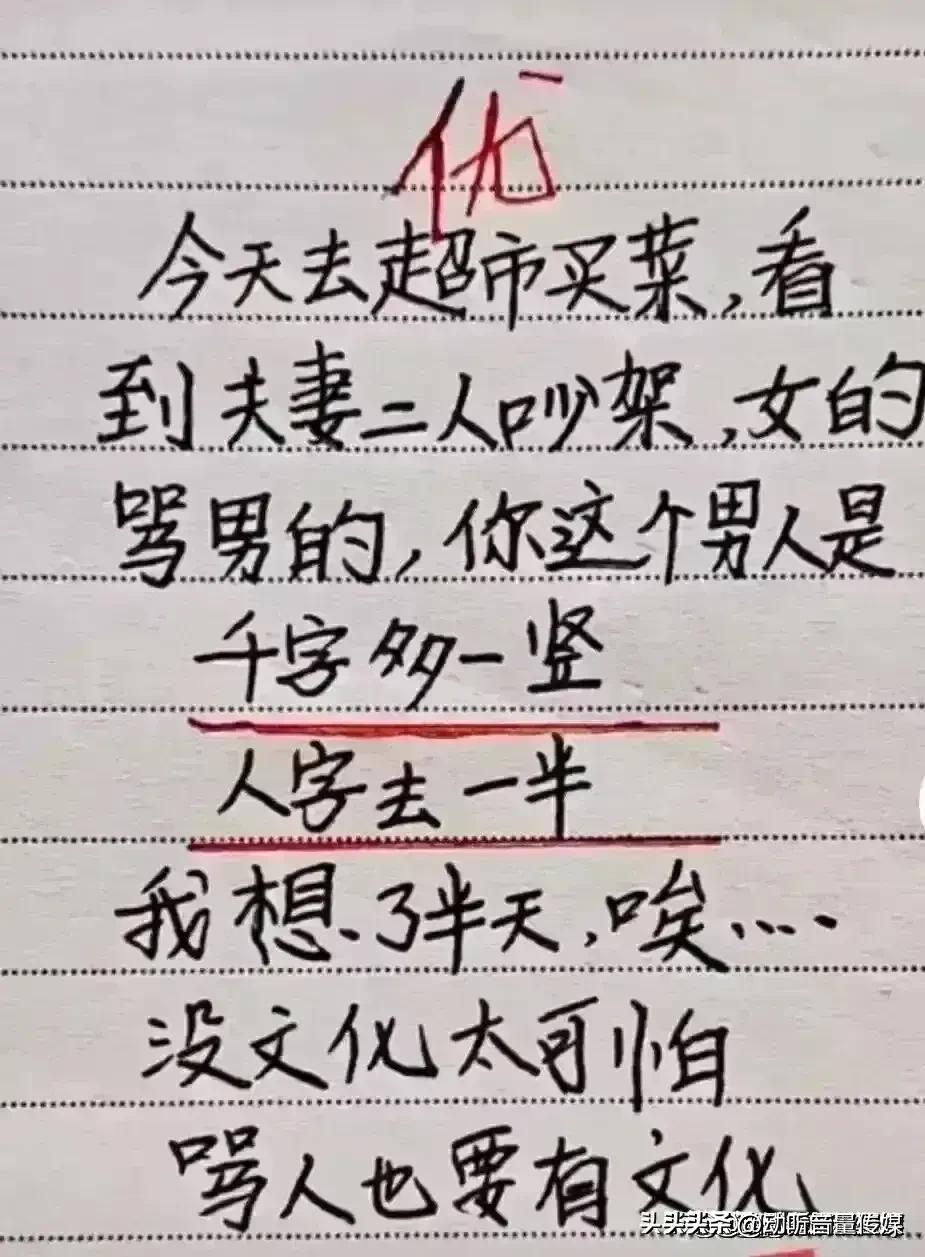 优
今天去超市买菜,看
到夫妻二人吵架,女的
骂男的,你这个男人是
千字多一竖
人字去一半
我想了半天,唉....
没文化太可怕
骂人也要有文化
头条@动听音量传媒